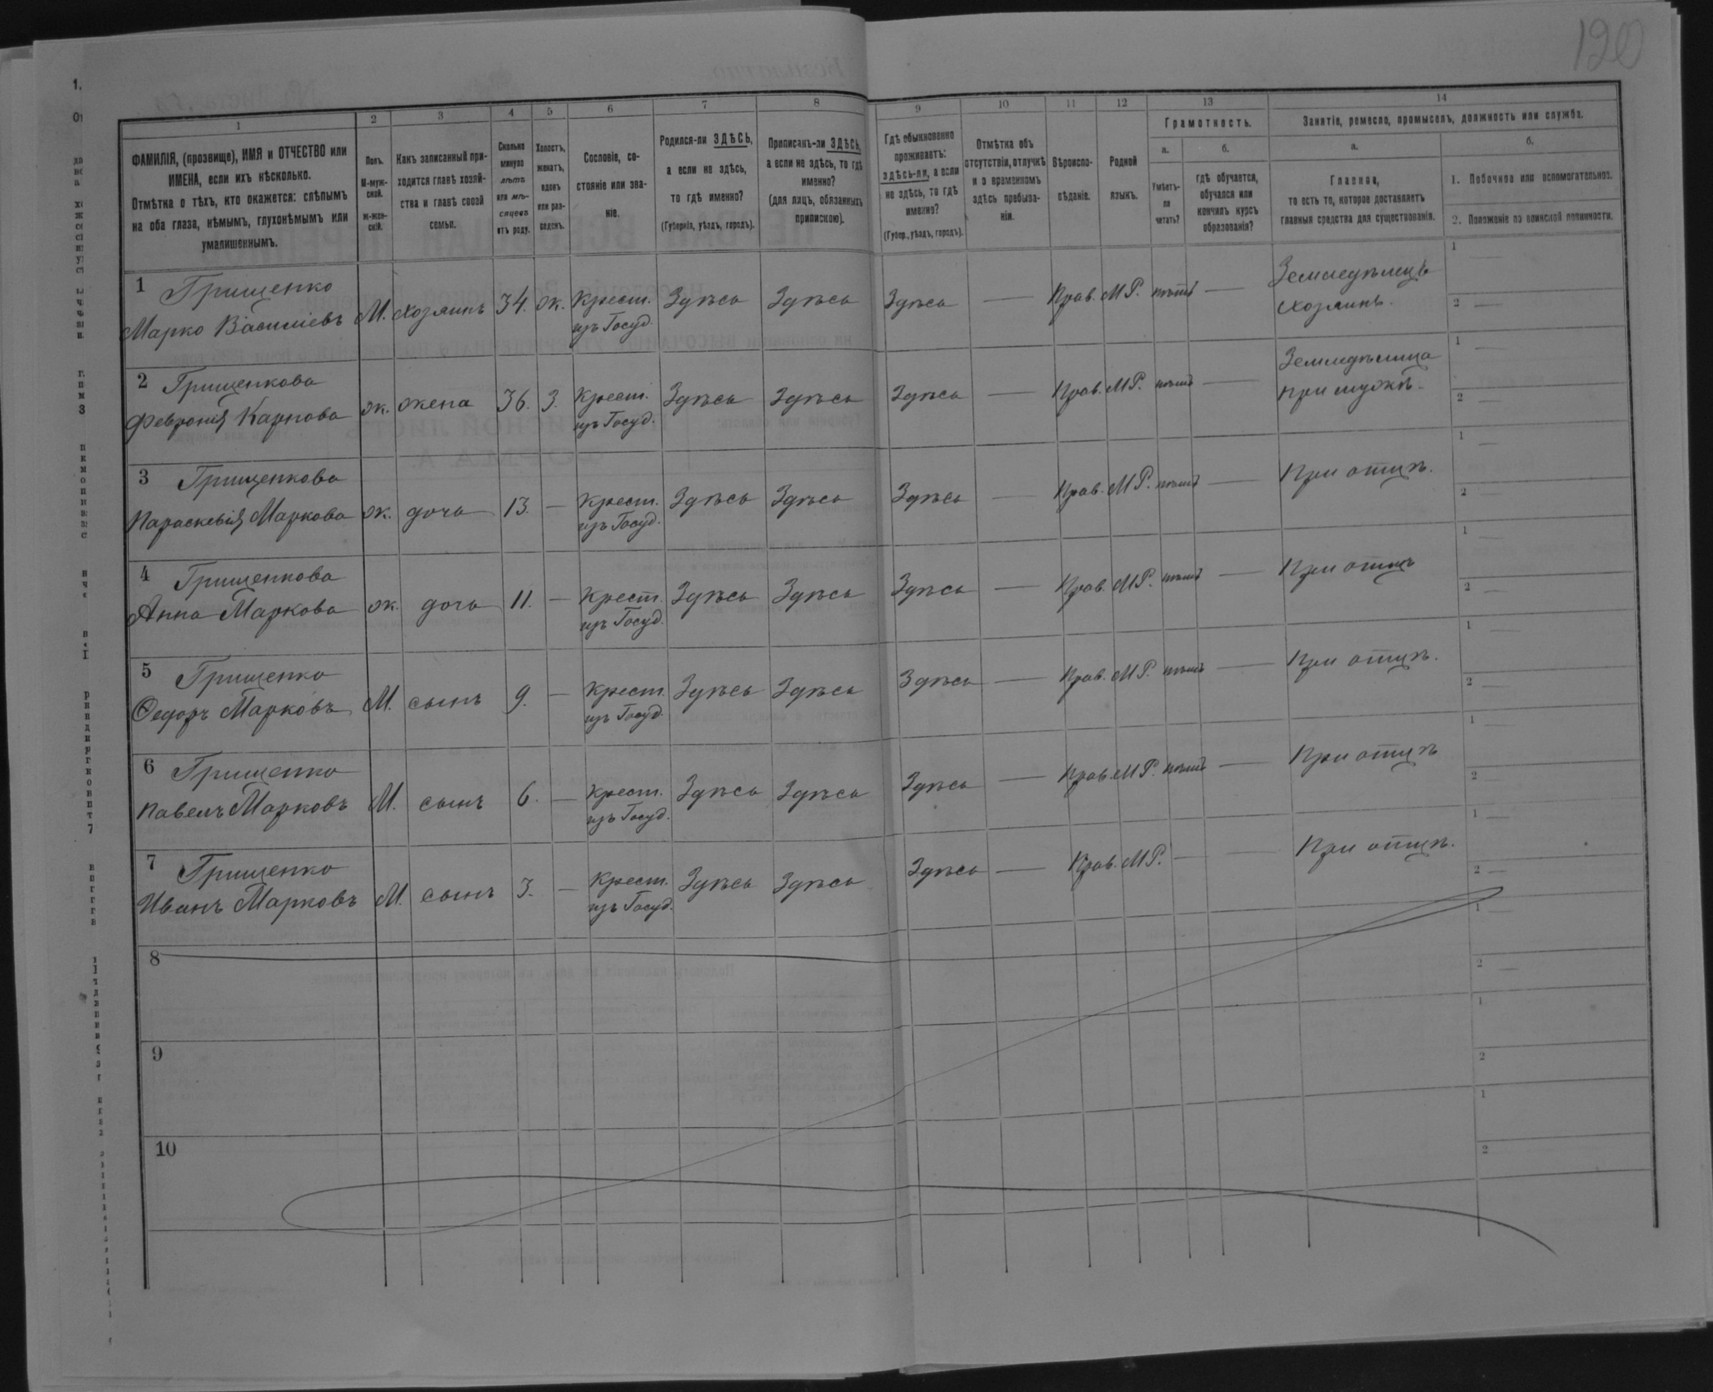 120
1 2 3 4 5 6 7 8 9 10 11 12 13 14
ФАМИЛІЯ, (прозвище), ИМЯ и ОТЧЕСТВО или
ИМЕНА, если ихъ нѣсколько.
Отмѣтка о тѣхъ, кто окажется: слѣпымъ
на оба глаза, нѣмымъ, глухонѣмымъ или
умалишеннымъ.
Полъ.
М-муж-
ской.
ж-жен-
скій.
Какъ записанный при-
ходится главѣ хозяй-
ства и главѣ своей
семьи.
Сколько
минуло
лѣтъ
или мѣ-
сяцевъ
отъ роду.
Холостъ,
женатъ,
вдовъ
или раз-
веденъ.
Сословіе, со-
стояніе или зва-
ніе.
Родился-ли ЗДѢСЬ,
а если не здѣсь,
то гдѣ именно?
(Губернія, уѣздъ, городъ).
Приписанъ-ли ЗДѢСЬ,
а если не здѣсь, то гдѣ
именно?
(для лицъ, обязанныхъ
припискою).
Гдѣ обыкновенно
проживаетъ:
здѣсь-ли, а если
не здѣсь, то гдѣ
именно?
(Губер., уѣздъ, городъ).
Отмѣтка объ
отсутствіи, отлучкѣ
и о временномъ
здѣсь пребыва-
ніи.
Вѣроиспо-
вѣданіе.
Родной
языкъ.
Грамотность.
а.
Умѣетъ-
ли
читать?
б.
гдѣ обучается,
обучался или
кончилъ курсъ
образованія?
Занятія, ремесло, промыселъ, должность или служба.
а.
Главное,
то есть то, которое доставляетъ
главныя средства для существованія.
б.
1. Побочное или вспомогательное.
2. Положеніе по воинской повинности.
1 Грищенко Землед&#1123;лецъ 1 —
Марко Василіевъ М. хозяинъ 34. ж. Крест. Здѣсь Здѣсь Здѣсь — Прав. М.Р. нѣтъ — хозяинъ. 2 —
изъ Госуд.
2 Грищенкова Земледѣлица 1 —
Февронія Карпова ж. жена 36. З. Крест. Здѣсь Здѣсь Здѣсь — Прав. М.Р. нѣтъ — при мужѣ. 2 —
изъ Госуд.
3 Грищенкова 1 —
Параскевія Маркова ж. дочь 13. — Крест. Здѣсь Здѣсь Здѣсь — Прав. М.Р. нѣтъ — При отцѣ. 2 —
изъ Госуд.
4 Грищенкова 1 —
Анна Маркова ж. дочь 11. — Крест. Здѣсь Здѣсь Здѣсь — Прав. М.Р. нѣтъ — При отцѣ 2 —
изъ Госуд.
5 Грищенко 1 —
Ѳедоръ Марковъ М. сынъ 9. — Крест. Здѣсь Здѣсь Здѣсь — Прав. М.Р. нѣтъ — При отцѣ. 2 —
изъ Госуд.
6 Грищенко 1 —
Павелъ Марковъ М. сынъ 6. — Крест. Здѣсь Здѣсь Здѣсь — Прав. М.Р. нѣтъ — При отцѣ 2
изъ Госуд.
7 Грищенко 1 —
Иванъ Марковъ М. сынъ 3. — Крест. Здѣсь Здѣсь Здѣсь — Прав. М.Р. — — При отцѣ. 2 —
изъ Госуд.
8 1 —
2 —
9 1
2
10 1
2